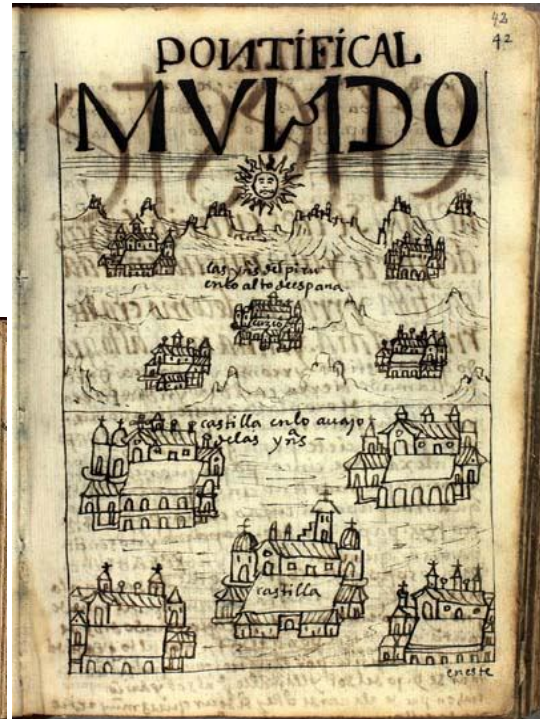 42
42
PONTÍFÍCAL
MVNDO
las yns del piru
en lo alto de espana
cuzco
castilla en lo auajo
delas yns
castilla
en este